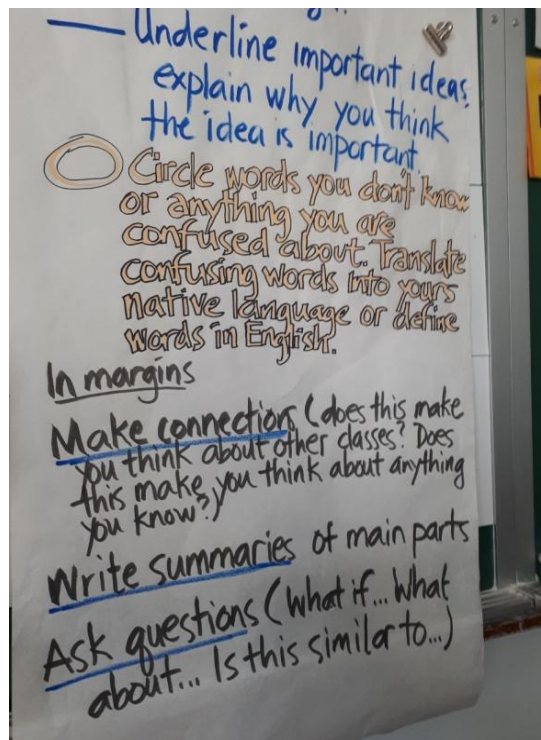 — Underline important ideas,
explain why you think
the idea is important.
Circle words you don't know
or anything you are
confused about. Translate
confusing words into yours
native language or define
words in English.
In margins
Make connections (does this make
you think about other classes? Does
this make you think about anything
you know?)
Write summaries of main parts
Ask questions (What if... What
about... Is this similar to...)